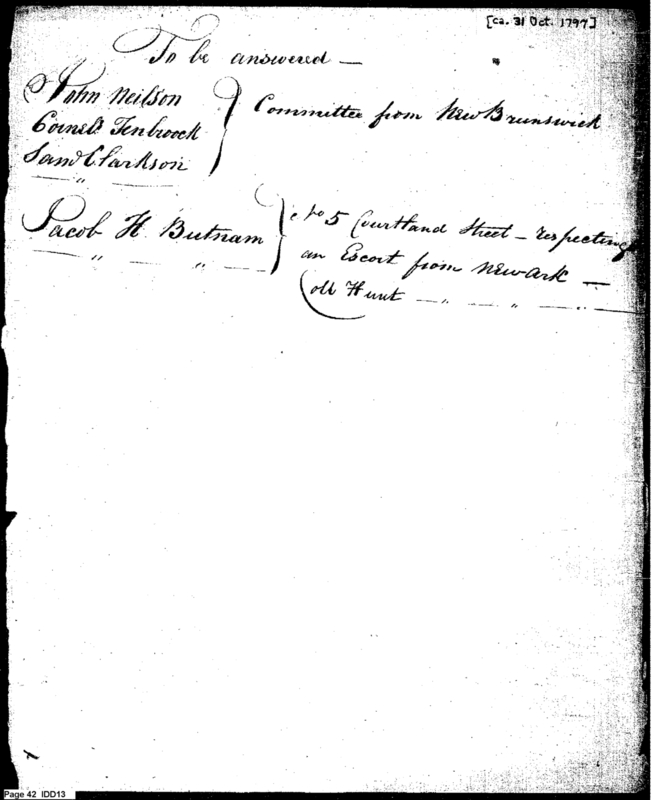 [ca. 31 Oct. 1797]
To be answered —
John Neilson
Cornels Tenbroock
Saml Clarkson
Committee from New Brunswick
Jacob H. Butnam
No 5 Courtland Street — respecting
an Escort from Newark —
Coll Hunt — „ — „ — „ —
Page 42 IDD13